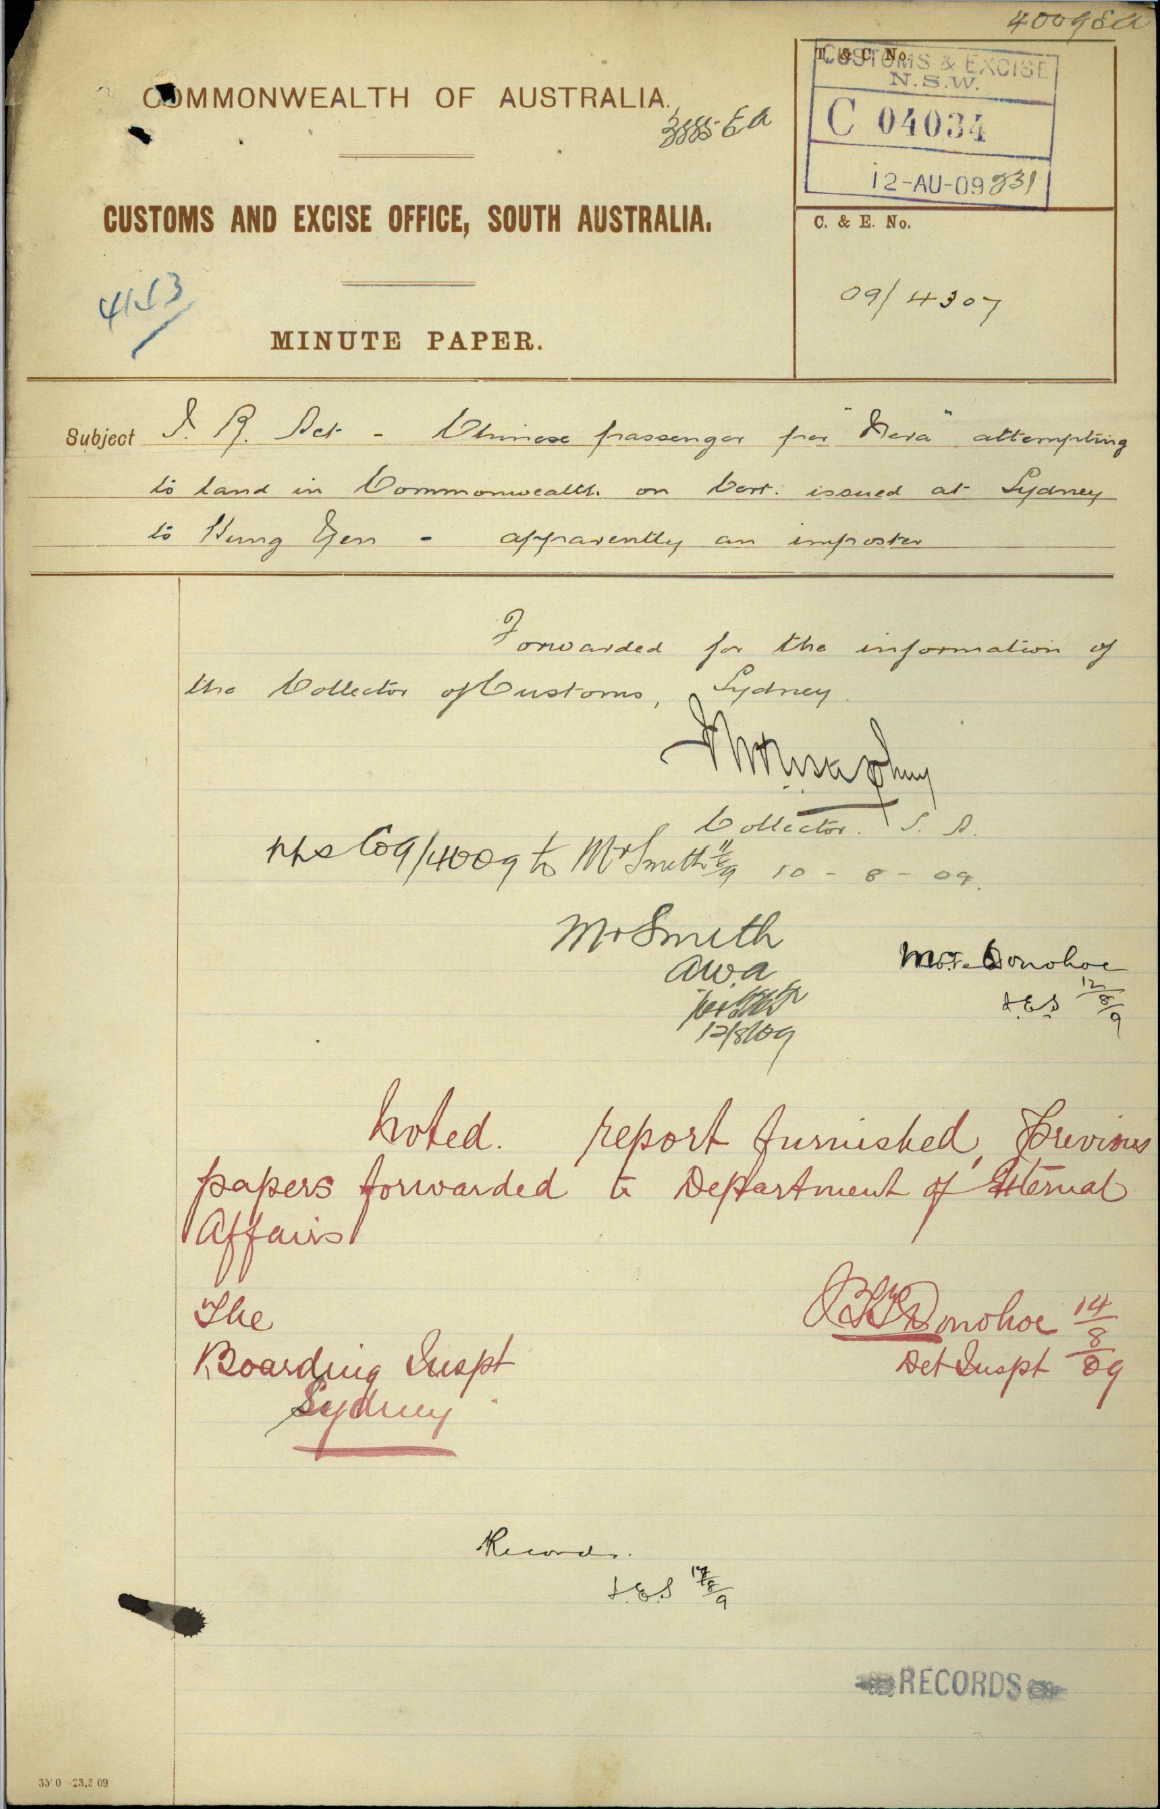 COMMONWEALTH OF AUSTRALIA.
CUSTOMS AND EXCISE OFFICE, SOUTH AUSTRALIA.
MINUTE PAPER.
T. & C. No.
CUSTOMS & EXCISE
N.S.W.
C 04034
12-AU-09
C. & E. No.
09/4307
Subject I. R. Act - Chinese passenger per "Gera" attempting
to land in Commonwealth on Cert. issued at Sydney
to Hung Yen - apparently an imposter
Forwarded for the information of
the Collector of Customs, Sydney.
Collector. S. A.
10-8-09.
C09/4009 to Mr Smith 11/8/9
Mr Smith
12/8/09
Mr Donohoe
12/8/9
Noted. report furnished, Previous
papers forwarded to Department of External
Affairs
The
Boarding Inspt
Sydney
Donohoe 14/8/09
Det Inspt
Records.
RECORDS